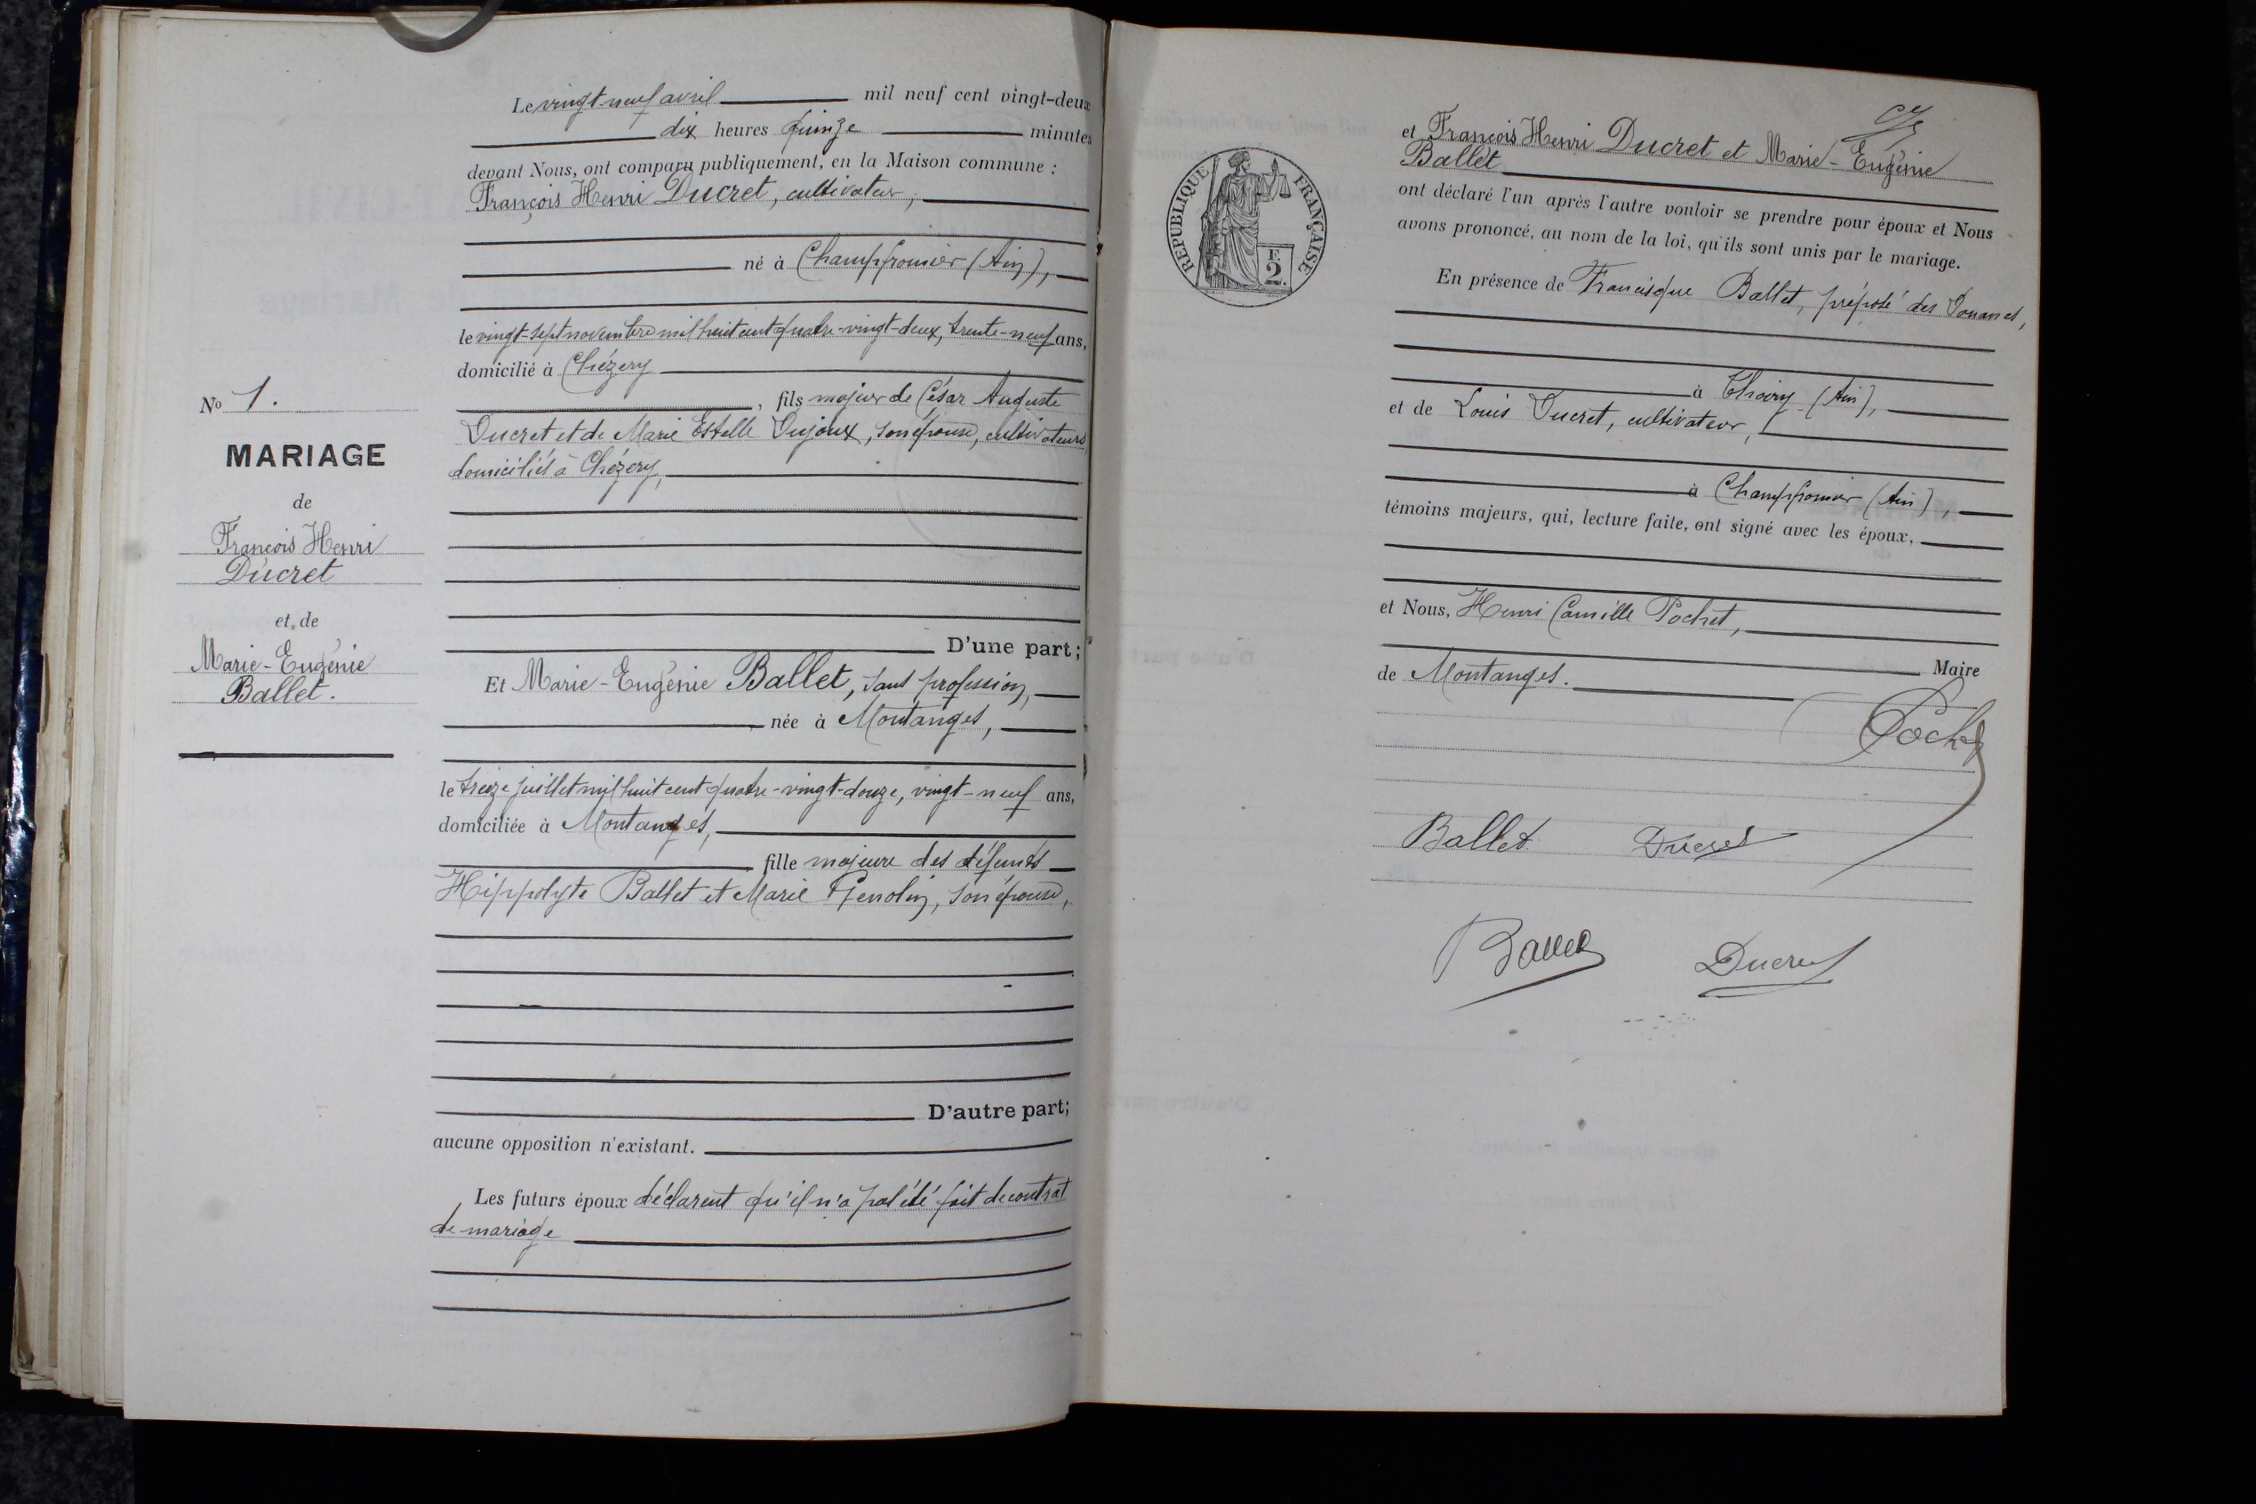 Le vingt-neuf avril mil neuf cent vingt-deux
dix heures quinze minutes
devant Nous, ont comparu publiquement, en la Maison commune :
François Henri Ducret, cultivateur,
né à Champfromier (Ain),
le vingt-sept novembre mil huit cent quatre-vingt-deux, trente-neuf ans,
domicilié à Chézery
, fils majeur de César Auguste
Ducret et de Marie Estelle Dujoux, son épouse, cultivateurs
domiciliés à Chézery,
D'une part ;
Et Marie-Eugénie Ballet, sans profession,
née à Montanges,
le treize juillet mil huit cent quatre-vingt-douze, vingt-neuf ans,
domiciliée à Montanges,
fille majeure des défunts
Hippolyte Ballet et Marie Genolin, son épouse,
D'autre part ;
aucune opposition n'existant.
Les futurs époux déclarent qu'il n'a pas été fait de contrat
de mariage
No 1.
MARIAGE
de
François Henri
Ducret
et de
Marie-Eugénie
Ballet.
RÉPUBLIQUE FRANÇAISE
F
2.
et François Henri Ducret et Marie-Eugénie
Ballet
ont déclaré l'un après l'autre vouloir se prendre pour époux et Nous
avons prononcé, au nom de la loi, qu'ils sont unis par le mariage.
En présence de Francisque Ballet, préposé des Douanes,
à Thoiry (Ain),
et de Louis Ducret, cultivateur,
à Champfromier (Ain),
témoins majeurs, qui, lecture faite, ont signé avec les époux,
et Nous, Henri Camille Pochet,
Maire
de Montanges.
Pochet
Ballet Ducret
Ballet Ducret